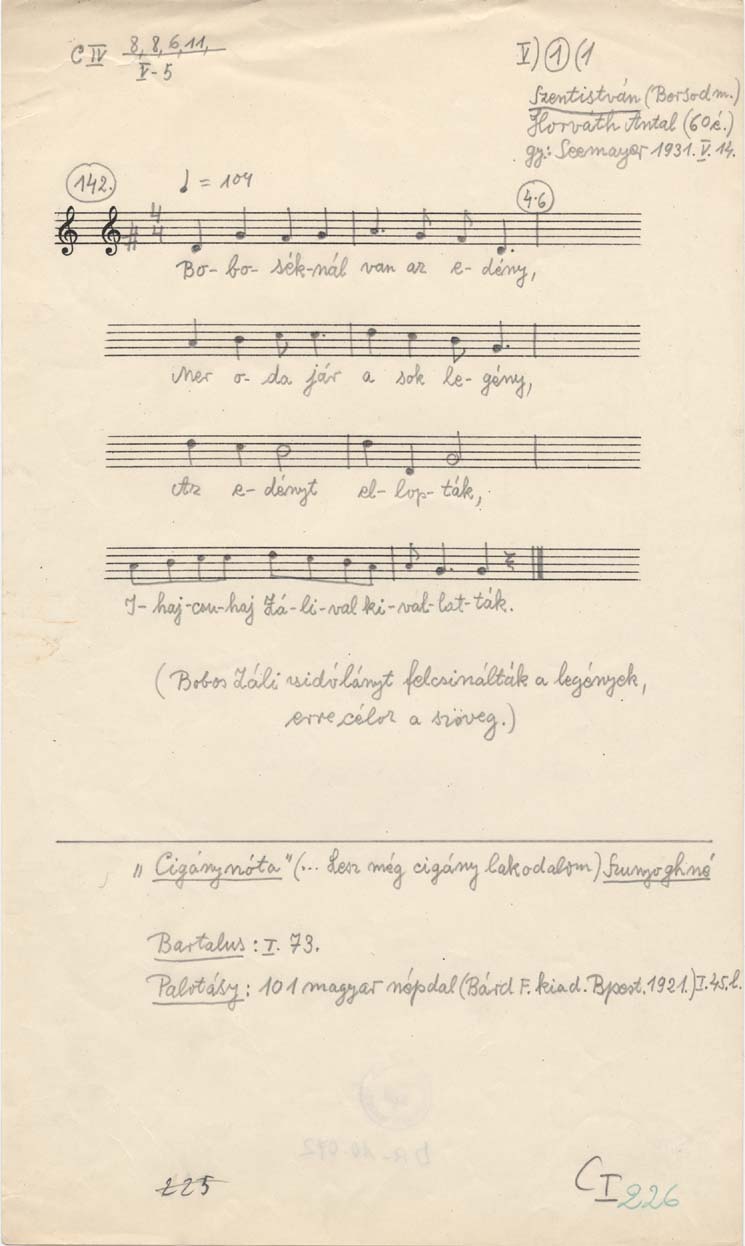 C IV 8, 8, 6, 11,
V-5
V) 1 (1
Szentistván (Borsod m.)
Horváth Antal (60 é.)
gy.: Seemayer 1931. V. 14.
142.
♩ = 104
4.6
4
4
Bo- bo- sék-nál van az e- dény,
Mer o- da jár a sok le- gény,
Az e- dényt el- lop- ták,
I- haj-csu-haj Zá- li- val ki- val- lat- ták.
(Bobos Záli zsidólányt felcsinálták a legények,
erre céloz a szöveg.)
„Cigánynóta" (... Lesz még cigány lakodalom) Szunyoghné
Bartalus: I. 73.
Palotásy: 101 magyar népdal (Bárd F. kiad. Bpest. 1921.) I. 45. l.
225
C I 226